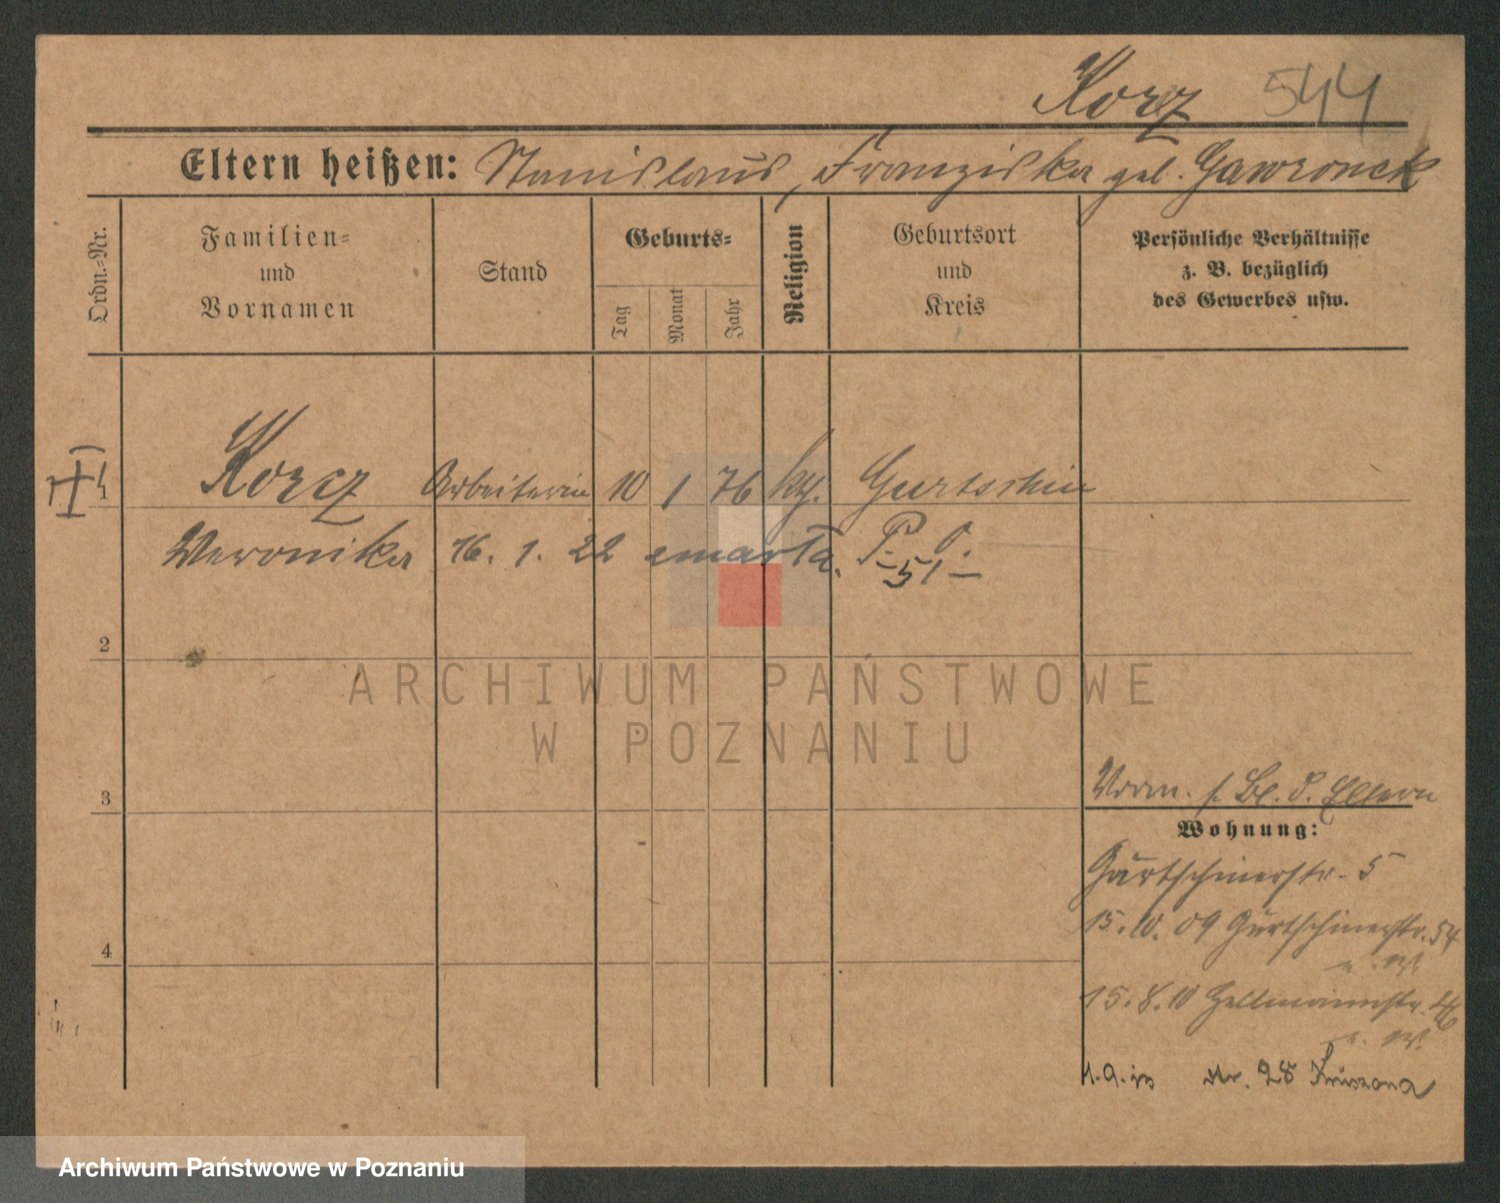 Korz 544
Eltern heißen: Stanislaus, Franziska geb. Gawronek
Ordn.-Nr.
Familien-
und
Vornamen
Stand
Geburts-
Tag
Monat
Jahr
Religion
Geburtsort
und
Kreis
Persönliche Verhältnisse
z. B. bezüglich
des Gewerbes usw.
1 Korcz Arbeiterin 10 1 76 kth. Gurtschin
Veronika 16. 1. 22 zmarła. P. O.
51
2
ARCHIWUM PAŃSTWOWE
W POZNANIU
3
Eltern
Wohnung:
Gurtschinerstr. 5
15. 10. 09 Gurtschinerstr. 54
4
15. 8. 10 Hellmannstr.
1. 9. 28
Archiwum Państwowe w Poznaniu